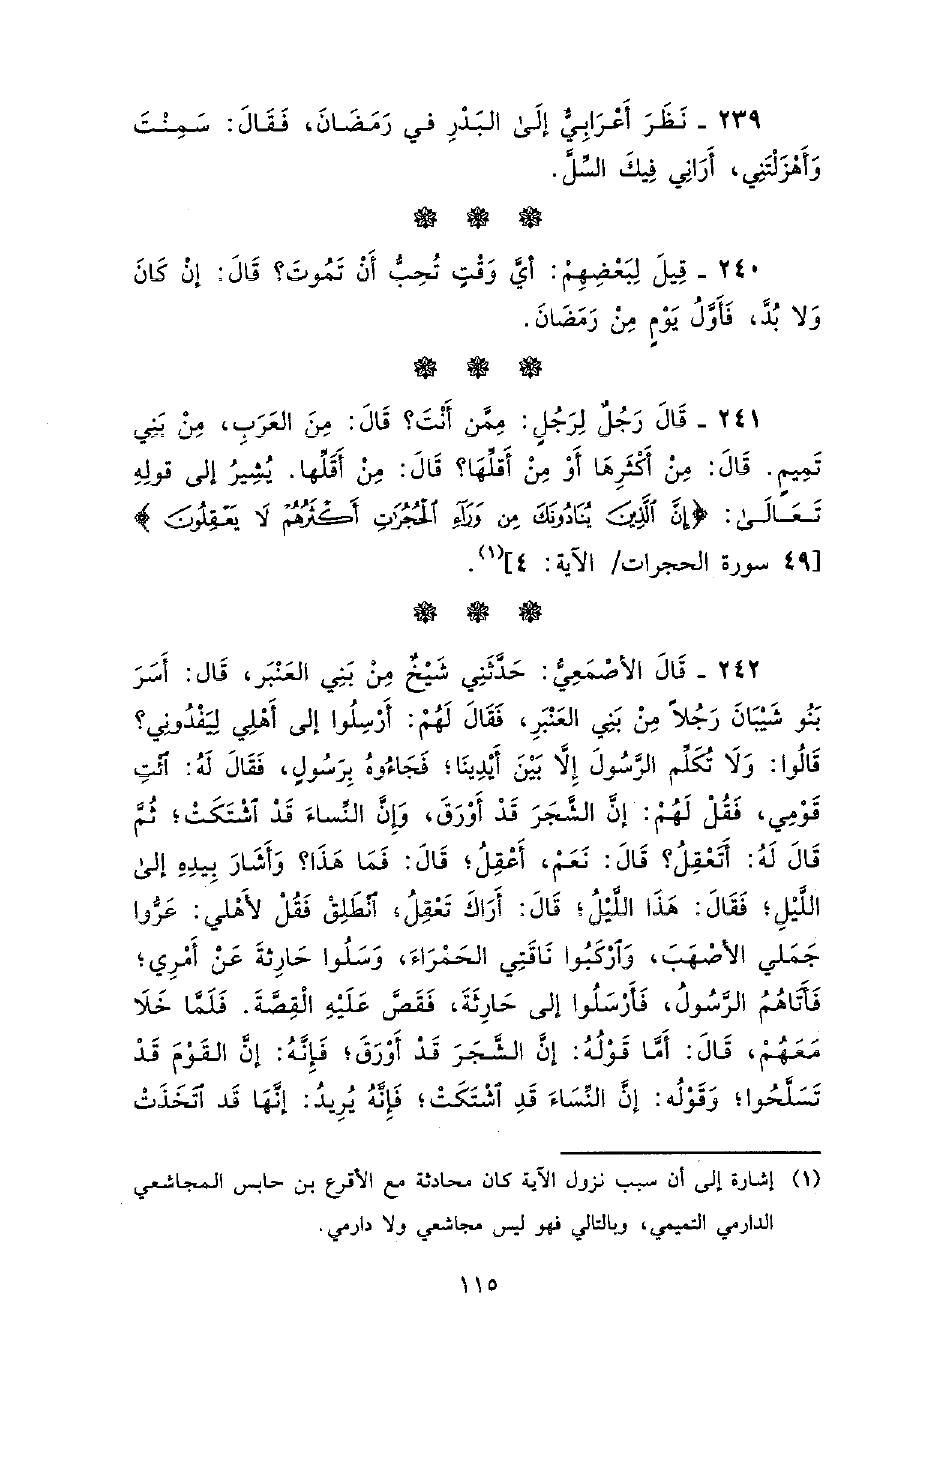 ٢٣٩ ـ نَظَرَ أَعْرَابِيٌّ إِلَىٰ البَدْرِ في رَمَضَانَ، فَقَالَ: سَمِنْتَ
وَأَهْزَلْتَنِي، أَرَانِي فِيكَ السِّلَّ.
٢٤٠ ـ قِيلَ لِبَعْضِهِمْ: أَيَّ وَقْتٍ تُحِبُّ أَنْ تَمُوتَ؟ قَالَ: إِنْ كَانَ
وَلَا بُدَّ، فَأَوَّلُ يَوْمٍ مِنْ رَمَضَانَ.
٢٤١ ـ قَالَ رَجُلٌ لِرَجُلٍ: مِمَّن أَنْتَ؟ قَالَ: مِنَ العَرَبِ، مِنْ بَنِي
تَمِيمٍ. قَالَ: مِنْ أَكْثَرِهَا أَوْ مِنْ أَقَلِّهَا؟ قَالَ: مِنْ أَقَلِّهَا. يُشِيرُ إلى قولِهِ
تَعَالَىٰ: ﴿إِنَّ ٱلَّذِينَ يُنَادُونَكَ مِن وَرَآءِ ٱلْحُجُرَٰتِ أَكْثَرُهُمْ لَا يَعْقِلُونَ﴾
[٤٩ سورة الحجرات/ الآية: ٤](١).
٢٤٢ ـ قَالَ الأَصْمَعِيُّ: حَدَّثَنِي شَيْخٌ مِنْ بَنِي العَنْبَرِ، قَال: أَسَرَ
بَنُو شَيْبَانَ رَجُلاً مِنْ بَنِي العَنْبَرِ، فَقَالَ لَهُمْ: أَرْسِلُوا إلى أَهْلِي لِيَفْدُونِي؟
قَالُوا: وَلَا تُكَلِّمِ الرَّسُولَ إِلَّا بَيْنَ أَيْدِينَا؛ فَجَاءُوهُ بِرَسُولٍ، فَقَالَ لَهُ: ٱئْتِ
قَوْمِي، فَقُلْ لَهُمْ: إِنَّ الشَّجَرَ قَدْ أَوْرَقَ، وَإِنَّ النِّسَاءَ قَدْ ٱشْتَكَتْ؛ ثُمَّ
قَالَ لَهُ: أَتَعْقِلُ؟ قَالَ: نَعَمْ، أَعْقِلُ؛ قَالَ: فَمَا هَذَا؟ وَأَشَارَ بِيدِهِ إلىٰ
اللَّيْلِ؛ فَقَالَ: هَذَا اللَّيْلُ؛ قَالَ: أَرَاكَ تَعْقِلُ، ٱنْطَلِقْ فَقُلْ لأَهْلي: عَرُّوا
جَمَلي الأَصْهَبَ، وَٱرْكَبُوا نَاقَتِي الحَمْرَاءَ، وَسَلُوا حَارِثَةَ عَنْ أَمْرِي؛
فَأَتَاهُمُ الرَّسُولُ، فَأَرْسَلُوا إلى حَارِثَةَ، فَقَصَّ عَلَيْهِ الْقِصَّةَ. فَلَمَّا خَلَا
مَعَهُمْ، قَالَ: أَمَّا قَوْلُهُ: إِنَّ الشَّجَرَ قَدْ أَوْرَقَ؛ فَإِنَّهُ: إِنَّ القَوْمَ قَدْ
تَسَلَّحُوا؛ وَقَوْلُه: إِنَّ النِّسَاءَ قَدِ ٱشْتَكَتْ؛ فَإِنَّهُ يُرِيدُ: إِنَّهَا قَد ٱتَّخَذَتْ
(١) إشارة إلى أن سبب نزول الآية كان محادثة مع الأقرع بن حابس المجاشعي
الدارمي التميمي، وبالتالي فهو ليس مجاشعي ولا دارمي.
١١٥